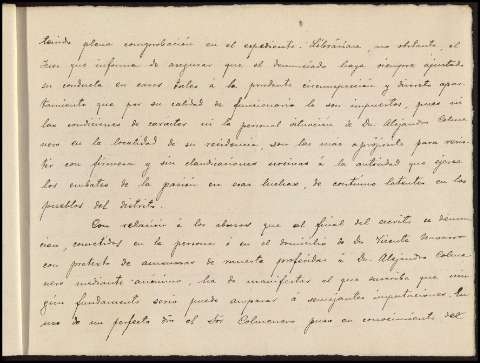 tenido plena comprobación en el expediente. Libráriase, no obstante, el
Juez que informa de asegurar que el denunciado haya siempre ajustado
su conducta en casos tales á la prudente circunspección y discreto apar-
tamiento que por su calidad de funcionario le son impuestos, pues ni
las condiciones de carácter ni la personal situación de Dn. Alejandro Colme
nero en la localidad de su residencia, son las más á propósito para resis-
tir con firmeza y sin claudicaciones nocivas á la autoridad que ejerce
los embates de la pasión en esas luchas, de continuo latentes en los
pueblos del distrito.
Con relación á los abusos que al final del escrito se denun
cian, cometidos en la persona ó en el domicilio de Dn. Vicente Navarro
con pretexto de amenazas de muerte proferidas á Dn. Alejandro Colme
nero mediante anónimo, ha de manifestar el que suscribe que nin
gún fundamento serio puede amparar á semejantes imputaciones. En
uso de un perfecto dro. el Sor. Colmenero puso en conocimiento del